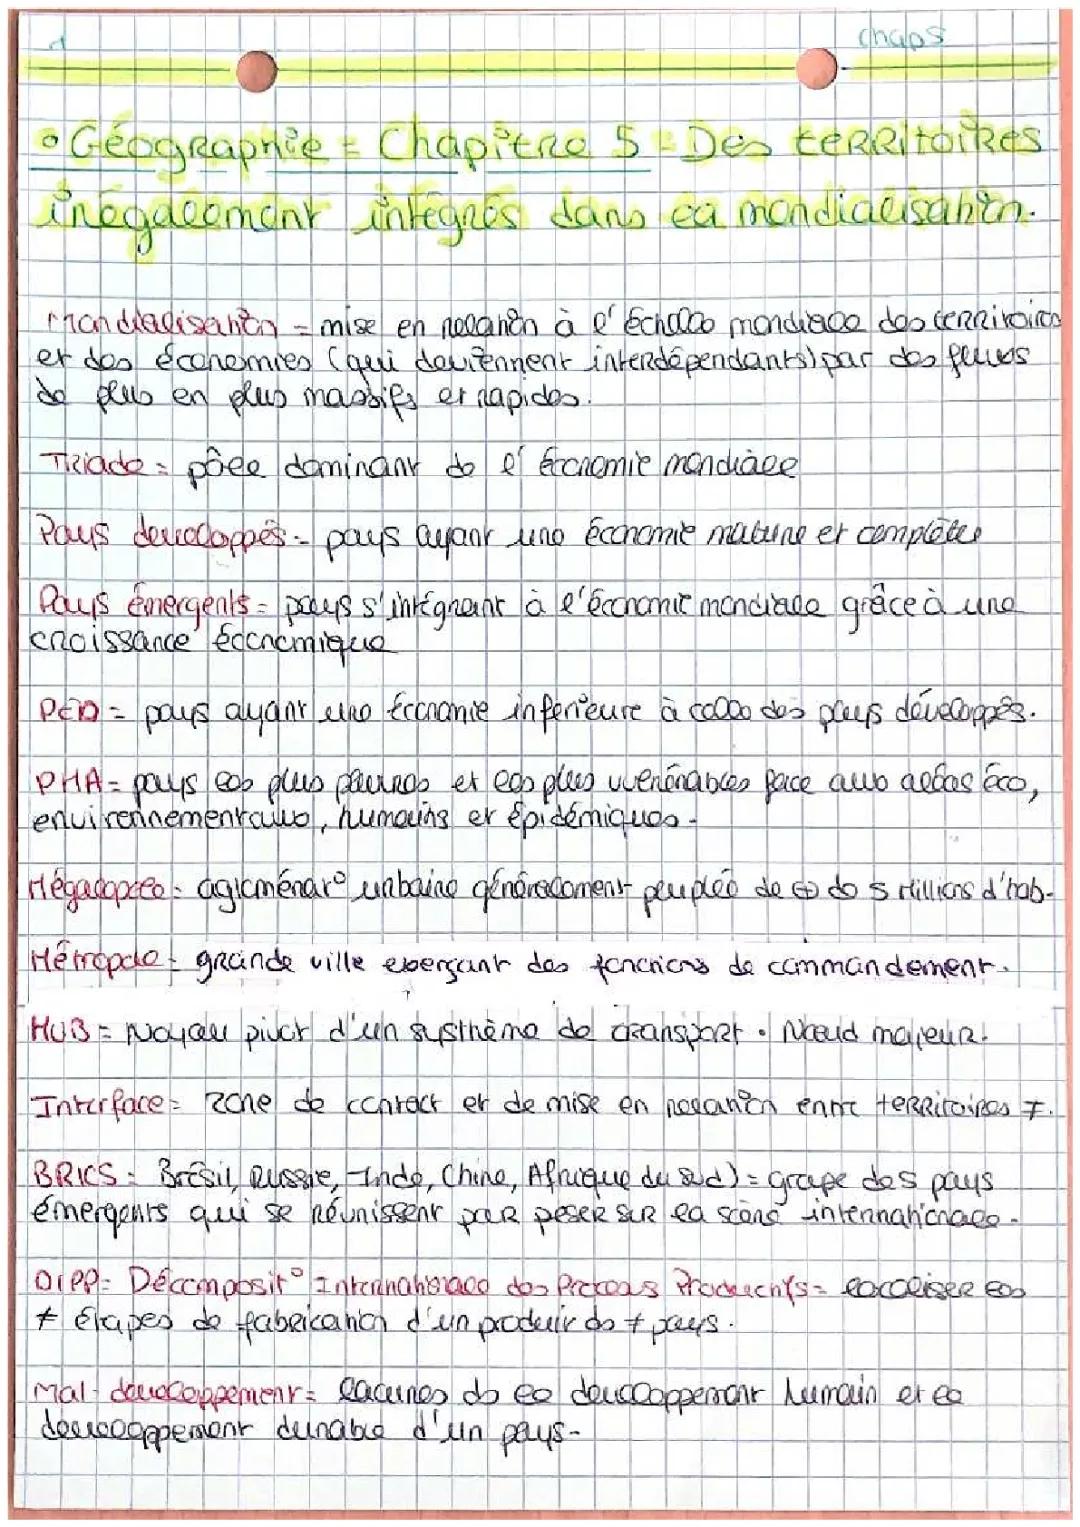 chap5
• Géographie = Chapitre 5 = Des territoires
inégalement intégrés dans la mondialisation.
Mondialisation = mise en relation à l'échelle mondiale des territoires
et des économies (qui deviennent interdépendants) par des fluxs
de plus en plus massifs et rapides.
Triade = pôle dominant de l'économie mondiale
Pays développés = pays ayant une économie mature et complète
Pays émergents = pays s'intégrant à l'économie mondiale grâce à une
croissance économique
PED = pays ayant une économie inférieure à celle des pays développés.
PMA = pays les plus pauvres et les plus vulnérables face aux aléas éco,
environnementaux, humains et épidémiques.
Mégalopole = aglomérat° urbaine généralement peuplée de de 5 Millions d'hab.
Métropole = grande ville exerçant des fonctions de commandement.
HUB = Noyau pivot d'un systhème de transport. Nœud majeur.
Interface = zone de contact et de mise en relation entre territoires ≠.
BRICS = Brésil, Russie, Inde, Chine, Afrique du Sud) = groupe des pays
émergents qui se réunissent pour peser sur la scène internationale.
DIPP = Décomposit° Internationale des Process Productifs = localiser les
≠ étapes de fabrication d'un produit ds ≠ pays.
Mal-développement = lacunes ds le développement humain et le
développement durable d'un pays.